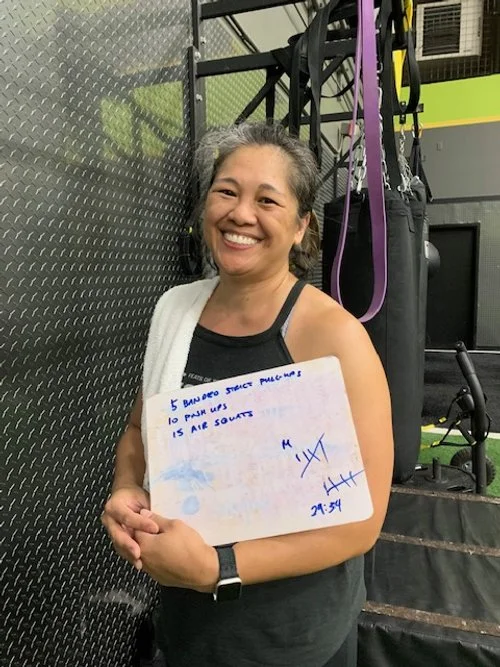 5 BANDED STRICT PULL-UPS
10 PUSH UPS
15 AIR SQUATS
M
29:54